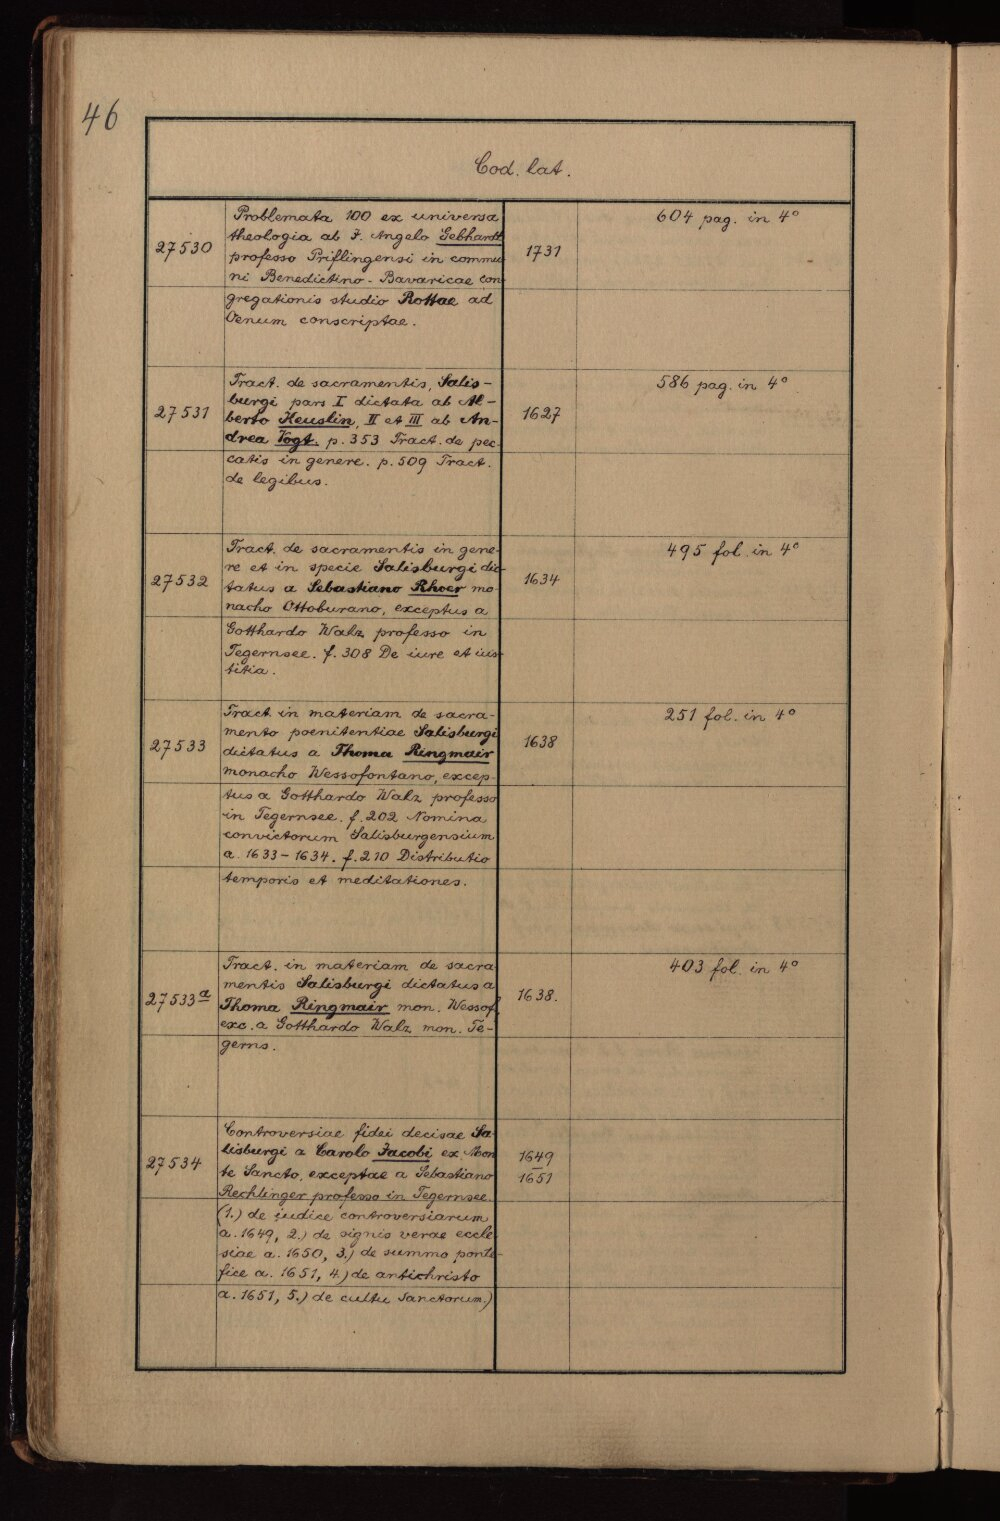 46
Cod. lat.
Problemata 100 ex universa
theologia ab F. Angelo Gebhardt
27530
professo Priflingensi in commu
ni Benedictino-Bavaricae con
gregationis studio Rottae ad
Oenum conscriptae.
1731
604 pag. in 4°
Tract. de sacramentis, Salis-
burgi pars I dictata ab Al-
27531
berto Keuslin, II et III ab An-
drea Vogt. p. 353 Tract. de pec-
catis in genere. p. 509 Tract.
de legibus.
1627
586 pag. in 4°
Tract. de sacramentis in gene-
re et in specie Salisburgi dic-
27532
tatus a Sebastiano Rhoer mo-
nacho Ottoburano, exceptus a
Gotthardo Walz professo in
Tegernsee. f. 308 De iure et ius-
titia.
1634
495 fol. in 4°
Tract. in materiam de sacra-
mento poenitentiae Salisburgi
27533
dictatus a Thoma Ringmair
monacho Wessofontano, excep-
tus a Gotthardo Walz professo
in Tegernsee. f. 202 Nomina
convictorum Salisburgensium
a. 1633-1634. f. 210 Distributio
temporis et meditationes.
1638
251 fol. in 4°
Tract. in materiam de sacra
mentis Salisburgi dictatus a
27533a
Thoma Ringmair mon. Wessof.
exc. a Gotthardo Walz mon. Te-
gerns.
1638.
403 fol. in 4°
Controversiae fidei decisae Sa-
lisburgi a Carolo Jacobi ex Mon
27534
te Sancto, exceptae a Sebastiano
Rechlinger professo in Tegernsee.
(1.) de iudice controversiarum
a. 1649, 2.) de signis verae eccle
siae a. 1650, 3.) de summo ponti-
fice a. 1651, 4.) de antichristo
a. 1651, 5.) de cultu Sanctorum.)
1649
–
1651